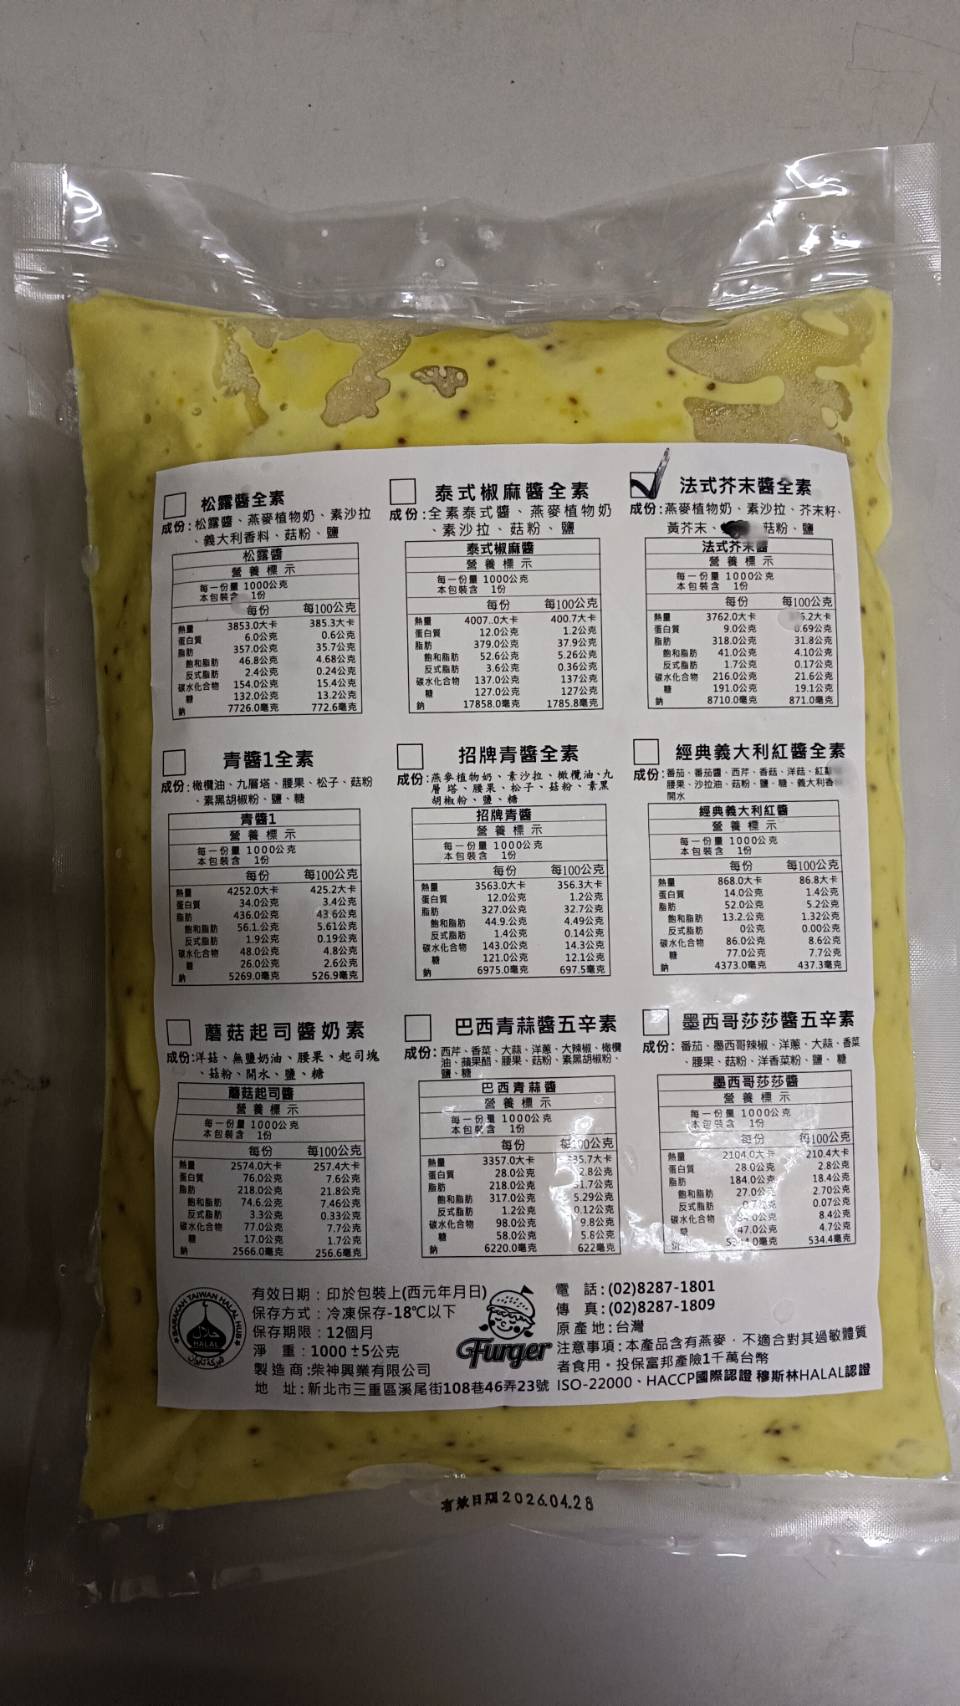 松露醬全素
成份:松露醬、燕麥植物奶、素沙拉
、義大利香料、菇粉、鹽
松露醬
營養標示
每一份量 1000公克
本包裝含 1份
每份 每100公克
熱量 3853.0大卡 385.3大卡
蛋白質 6.0公克 0.6公克
脂肪 357.0公克 35.7公克
飽和脂肪 46.8公克 4.68公克
反式脂肪 2.4公克 0.24公克
碳水化合物 154.0公克 15.4公克
糖 132.0公克 13.2公克
鈉 7726.0毫克 772.6毫克
泰式椒麻醬全素
成份:全素泰式醬、燕麥植物奶
、素沙拉、菇粉、鹽
泰式椒麻醬
營養標示
每一份量 1000公克
本包裝含 1份
每份 每100公克
熱量 4007..0大卡 400.7大卡
蛋白質 12.0公克 1.2公克
脂肪 379.0公克 37.9公克
飽和脂肪 52.6公克 5.26公克
反式脂肪 3.6公克 0.36公克
碳水化合物 137.0公克 137公克
糖 127.0公克 127公克
鈉 17858.0毫克 1785.8毫克
法式芥末醬全素
成份:燕麥植物奶、素沙拉、芥末籽、
黃芥末、 菇粉、鹽
法式芥末醬
營養標示
每一份量 1000公克
本包裝含 1份
每份 每100公克
熱量 3762.0大卡
蛋白質 9.0公克 0.69公克
脂肪 318.0公克 31.8公克
飽和脂肪 41.0公克 4.10公克
反式脂肪 1.7公克 0.17公克
碳水化合物 216.0公克 21.6公克
糖 191.0公克 19.1公克
鈉 8710.0毫克 871.0毫克
青醬1全素
成份:橄欖油、九層塔、腰果、松子、菇粉
、素黑胡椒粉、鹽、糖
青醬1
營養標示
每一份量 1000公克
本包裝含 1份
每份 每100公克
熱量 4252.0大卡 425.2大卡
蛋白質 34.0公克 3.4公克
脂肪 436.0公克 43.6公克
飽和脂肪 56.1.公克 5.61公克
反式脂肪 1.9公克 0.19公克
碳水化合物 48.0公克 4.8公克
糖 26.0公克 2.6公克
鈉 5269.0毫克 526.9毫克
招牌青醬全素
成份:燕麥植物奶、素沙拉、橄欖油、九
層塔、腰果、松子、菇粉、素黑
胡椒粉、鹽、糖
招牌青醬
營養標示
每一份量 1000公克
本包裝含 1份
每份 每100公克
熱量 3563.0大卡 356.3大卡
蛋白質 12.0公克 1.2公克
脂肪 327.0公克 32.7公克
飽和脂肪 44.9.公克 4.49公克
反式脂肪 1.4公克 0.14公克
碳水化合物 143.0公克 14.3公克
糖 121.0公克 12.1公克
鈉 6975.0毫克 697.5毫克
經典義大利紅醬全素
成份:番茄、番茄醬、西芹、香菇、洋菇、紅
腰果、沙拉油、菇粉、鹽、糖、義大利香
開水
經典義大利紅醬
營養標示
每一份量 1000公克
本包裝含 1份
每份 每100公克
熱量 868.0大卡 86.8大卡
蛋白質 14.0公克 1.4公克
脂肪 52.0公克 5.2公克
飽和脂肪 13.2.公克 1.32公克
反式脂肪 0公克 0.00公克
碳水化合物 86.0公克 8.6公克
糖 77.0公克 7.7公克
鈉 4373.0毫克 437.3毫克
蘑菇起司醬奶素
成份:洋菇、無鹽奶油、腰果、起司塊
、菇粉、開水、鹽、糖
蘑菇起司醬
營養標示
每一份量 1000公克
本包裝含 1份
每份 每100公克
熱量 2574.0大卡 257.4大卡
蛋白質 76.0公克 7.6公克
脂肪 218.0公克 21.8公克
飽和脂肪 74.6.公克 7.46公克
反式脂肪 3.3公克 0.33公克
碳水化合物 77.0公克 7.7公克
糖 17.0公克 1.7公克
鈉 2566.0毫克 256.6毫克
巴西青蒜醬五辛素
成份:西芹、香菜、大蒜、洋蔥、大辣椒、橄欖
油、蘋果醋、腰果、菇粉、素黑胡椒粉、
鹽、糖
巴西青蒜醬
營養標示
每一份量 1000公克
本包裝含 1份
每份 每100公克
熱量 3357.0大卡
蛋白質 28.0公克 2.8公克
脂肪 218.0公克
飽和脂肪 317.0公克 5.29公克
反式脂肪 1.2公克 0.12公克
碳水化合物 98.0公克 9.8公克
糖 58.0公克 5.8公克
鈉 6220.0毫克 622毫克
墨西哥莎莎醬五辛素
成份:番茄、墨西哥辣椒、洋蔥、大蒜、香菜
、腰果、菇粉、洋香菜粉、鹽、糖
墨西哥莎莎醬
營養標示
每一份量 1000公克
本包裝含 1份
每份 每100公克
熱量 2104.0大卡 210.4大卡
蛋白質 28.0公克 2.8公克
脂肪 184.0公克 18.4公克
飽和脂肪 27.0公克 2.70公克
反式脂肪 0.07公克
碳水化合物 8.4公克
糖 47.0公克 4.7公克
鈉 534.4毫克
有效日期:印於包裝上(西元年月日)
保存方式:冷凍保存-18℃以下
保存期限:12個月
淨 重:1000±5公克
製造商:柴神興業有限公司
地 址:新北市三重區溪尾街108巷46弄23號
TAIWAN HALAL HUB
HALAL
Furger
電 話:(02)8287-1801
傳 真:(02)8287-1809
原產地:台灣
注意事項:本產品含有燕麥,不適合對其過敏體質
者食用。投保富邦產險1千萬台幣
ISO-22000、HACCP國際認證 穆斯林HALAL認證
有效日期2026.04.28